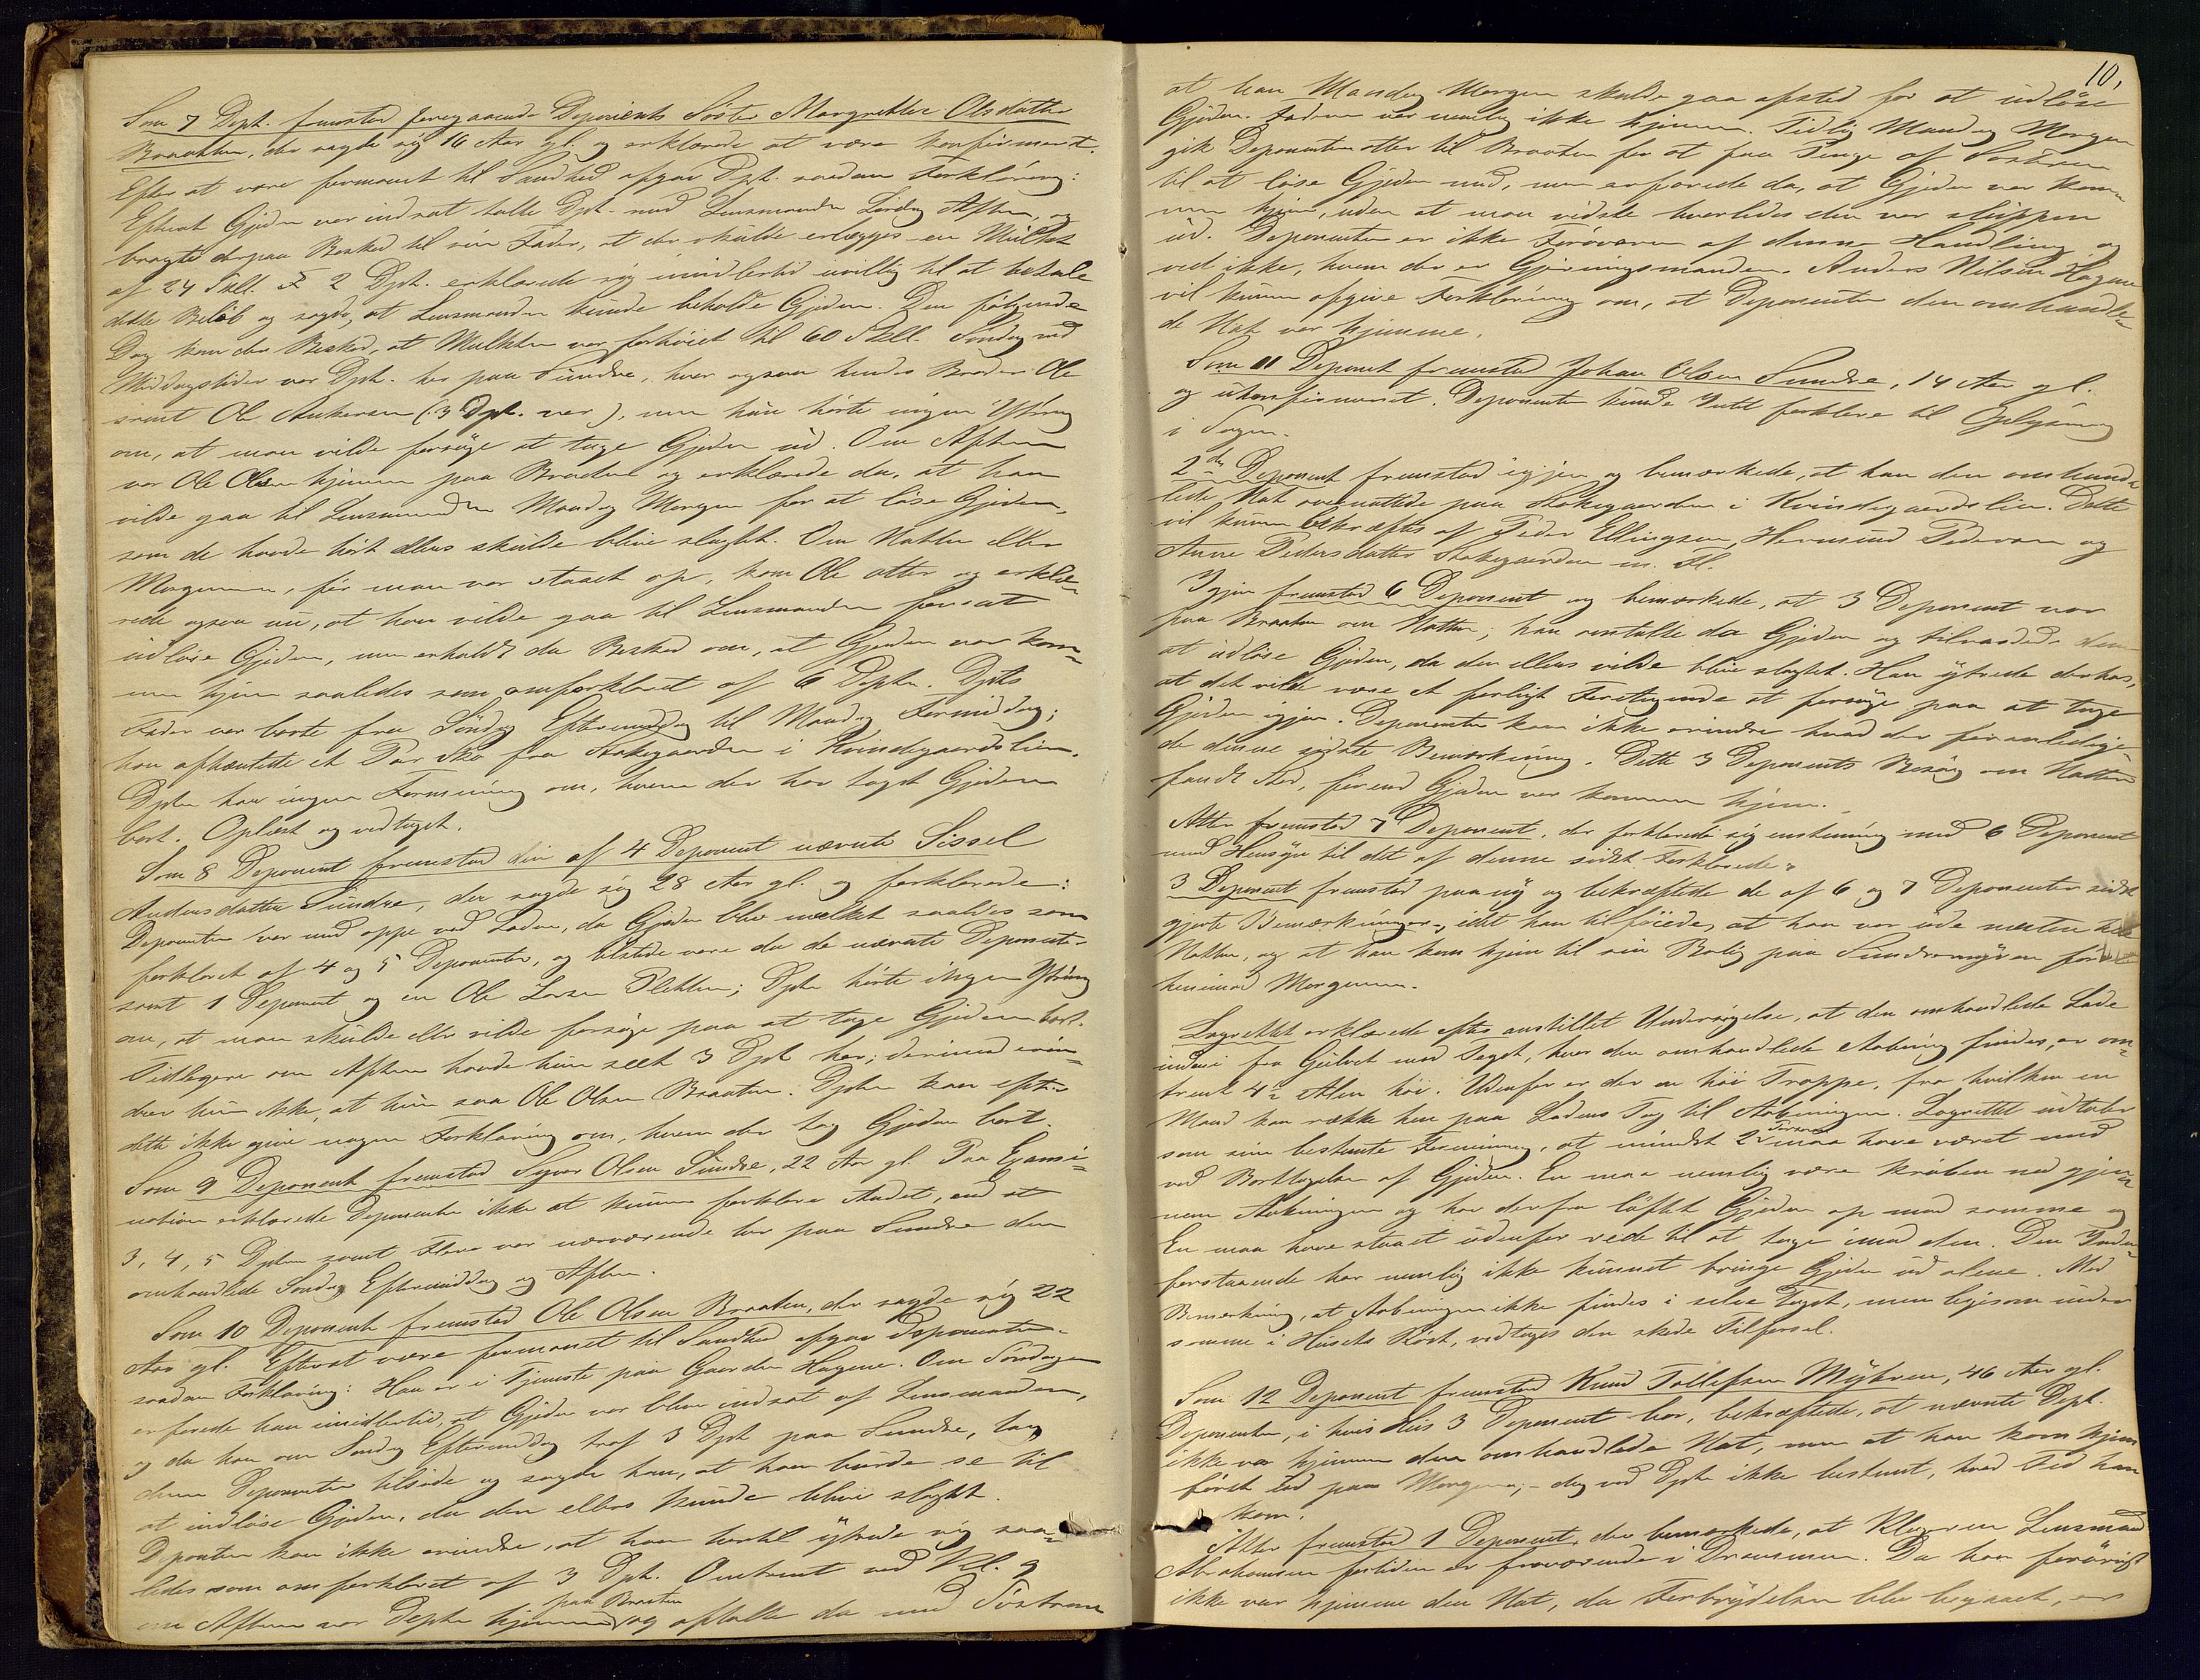 Som 7 Dept. fremstod foregaaende Deponents Söster Margrethe Olsdatter
Braathen, der sagde sig 16 Aar gl. og erklærede at være konfirmeret.
Efter at være formanet til Sandhed afgav Dpt. saadan Forklaring:
Efterat Gjeden var indsat talte Dpt. med Lensmanden Löverdag Aften, og
bragte derpaa Besked til sin Fader, at der skulde erlægges en Mulkt
af 24 Skll. 2 Dpt. erklærede sig imidlertid uvillig til at betale
dette Belöb og sagde, at Lensmanden kunde beholde Gjeden. Den fölgende
Dag kom der Besked, at Mulkten var forhöiet til 60 Skll. Söndag ved
Middagstider var Dpt. her paa Sundre, hvor ogsaa hendes Broder Ole
samt Ole Ankersen (: 3 Dpt. var), men hun hörte ingen Ytring
om, at man vilde forsöge at tage Gjeden ud. Om Aftenen
var Ole Olsen hjemme paa Braaten og erklærede da, at han
vilde gaa til Lensmanden Mandag Morgen for at löse Gjeden,
som de havde hört ellers skulde blive slagtet. Om Natten eller
Morgenen, för man var staaet op, kom Ole atter og erklæ-
rede ogsaa nu, at han vilde gaa til Lensmanden for at
indlöse Gjeden, men erholdt da Besked om, at Gjeden var kom-
men hjem saaledes som omforklaret af 6 Dpten. Dpts
Fader var borte fra Söndag Eftermiddag til Mandag Formiddag;
han afhentede et Par Sko fra Stokegaarden i Kvindegaardslien.
Dpten har ingen Formening om, hvem der har taget Gjeden
bort. Oplæst og vedtaget.
Som 8 Deponent fremstod den af 4 Deponent nævnte Sissel
Andersdatter Sundre, der sagde sig 28 Aar gl. og forklarede:
Deponenten var med oppe ved Laden, da Gjeden blev melket saaledes som
forklaret af 4 og 5 Deponenter, og tilstede vare da de nævnte Deponenter
samt 1 Deponent og en Ole Larsen Sletten; Dpten hörte ingen Ytring
om, at man skulde eller vilde forsöge paa at tage Gjeden bort.
Tidligere om Aftenen havde hun seet 3 Dpt her; derimod erin-
drer hun ikke, at hun saa Ole Olsen Braaten. Dpten kan efter
dette ikke give nogen Forklaring om, hvem der tog Gjeden bort.
Som 9 Deponent fremstod Syver Olsen Sundre, 22 Aar gl. Paa Exami-
nation erklærede Deponenten ikke at kunne forklare Andet, end at
3, 4, 5 Dpten samt Flere var nærværende her paa Sundre den
omhandlede Söndag Eftermiddag og Aften.
Som 10 Deponent fremstod Ole Olsen Braaten, der sagde sig 22
Aar gl. Efterat være formanet til Sandhed afgav Deponenten
saadan Forklaring: Han er i Tjeneste paa Gaarden Hagene. Om Söndagen
erfarede han imidlertid, at Gjeden var bleven indsat af Lensmanden,
og da han om Söndag Eftermiddag traf 3 Dpt paa Sundre, tog
denne Deponenten tilside og sagde ham, at han burde se til
at indlöse Gjeden, da den ellers kunde blive slagtet.
Deponten kan ikke erindre, at han dertil ytrede sig saa-
ledes som omforklaret af 3 Dpt. Omtrent ved Kl. 9
paa Braaten
om Aftenen var Depten hjemme og aftalte da med Söstrene
10.
at han Mandag Morgen skulde gaa afsted for at indlöse
Gjeden. Faderen var nemlig ikke hjemme. Tidlig Mandag Morgen
gik Deponenten atter til Braaten for at faa Penge af Söstrene
til at löse Gjeden med, men erfarede da, at Gjeden var kom-
men hjem, uden at man vidste hvorledes den var sluppen
ud. Deponenten er ikke Udöveren af denne Handling og
ved ikke, hvem der er Gjerningsmanden. Anders Nilsen Hagene
vil kunne afgive Forklaring om, at Deponenten den omhandle-
de Nat var hjemme.
Som 11 Deponent fremstod Johan Olsen Sundre, 14 Aar gl.
og ukonfirmeret. Deponenten kunde Intet forklare til Oplysning
i Sagen.
2den Deponent fremstod igjen og bemærkede, at han den omhand-
lede Nat overnattede paa Stokegaarden i Kvindegaardslien. Dette
vil kunne bekræftes af Peder Ellingsen, Hermund Pedersen og
Anne Pedersdatter Stokegaarden m. Fl.
Igjen fremstod 6 Deponent og bemærkede, at 3 Deponent var
paa Braaten om Natten; han omtalte da Gjeden og tilraadede dem
at indlöse Gjeden, da den ellers vilde blive slagtet. Han ytrede derhos,
at det vilde være et farligt Foretagende at forsöge paa at tage
Gjeden igjen. Deponenten kan ikke erindre hvad der foranledige-
de denne sidste Bemærkning. Dette 3 Deponents Besög om Natten
fandt Sted, förend Gjeden var kommen hjem.
Atter fremstod 7 Deponent, der forklarede sig enstemmig med 6 Deponent
med Hensyn til det af denne sidst Forklarede.
3 Deponent fremstod paany og bekræftede de af 6 og 7 Deponenter sidst
gjorte Bemærkninger, idet han tilföiede, at han var ude næsten hele
Natten, og at han kom hjem til sin Bolig paa Sundremyren först
henimod Morgenen.
Lagrettet erklærede efter anstillet Undersögelse, at den omhandlede Lade
indeni fra Gulvet mod Taget, hvor den omhandlede Aabning findes, er om-
trent 4½ Alen höi. Udenfor er der en höi Trappe, fra hvilken en
Mand kan række hen paa Ladens Tag til Aabningen. Lagrettet udtaler
som sin bestemte Formening, at mindst 2 Personer maa have været med
ved Borttagelsen af Gjeden. En maa nemlig være kröben ned gjen-
nem Aabningen og har derfra löftet Gjeden op mod samme og
En maa have staaet udenfor rede til at tage imod den. Den Inden-
forstaaende har nemlig ikke kunnet bringe Gjeden ud alene. Med
Bemærkning, at Aabningen ikke findes i selve Taget, men ligesom under
samme i Husets Röst, vedtages den skede Tilförsel.
Som 12 Deponent fremstod Knud Tollefsen Myhren, 46 Aar gl.
Deponenten, i hvis Hus 3 Deponent bor, bekræftede, at nævnte Dept.
ikke var hjemme den omhandlede Nat, men at han kom hjem
först led paa Morgenen; dog ved Dpten ikke bestemt, hvad Tid han
kom.
Atter fremstod 1 Deponent, der bemærkede, at Klageren Lensmand
Abrahamsen fortiden er fraværende i Drammen. Da han forövrigt
ikke var hjemme den Nat, da Forbrydelsen blev begaaet, er